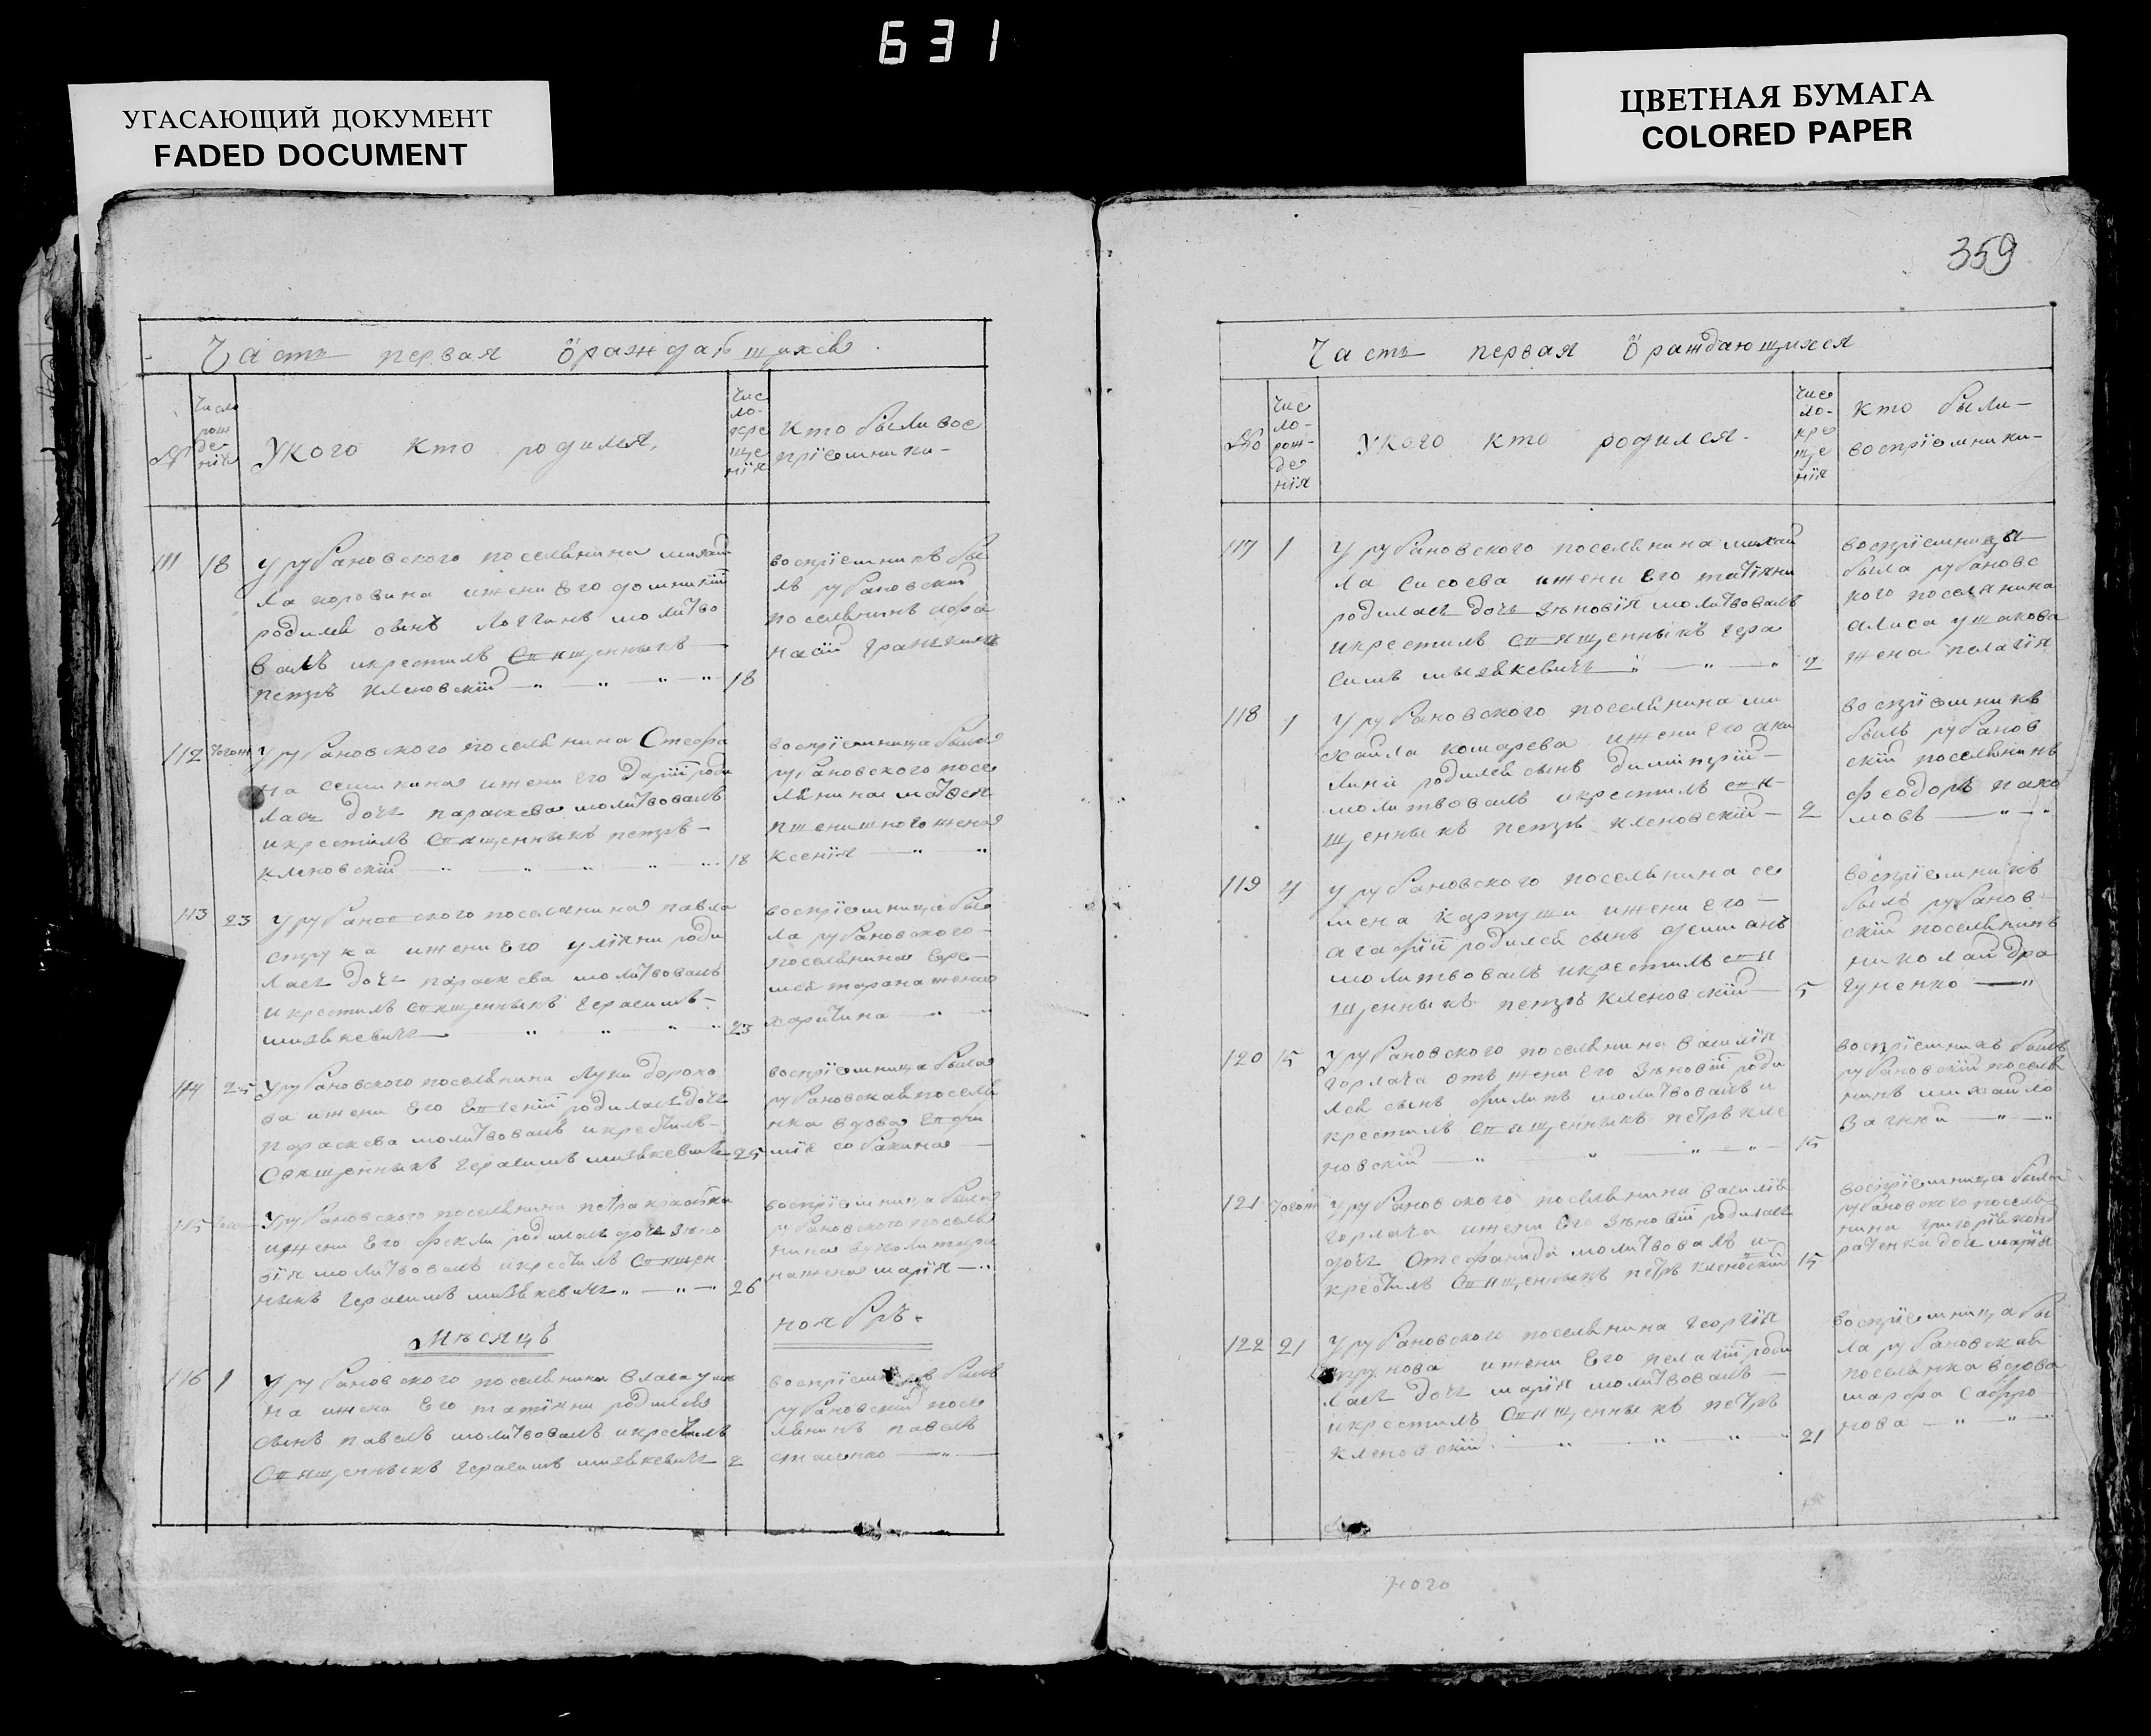 631
УГАСАЮЩИЙ ДОКУМЕНТ
FADED DOCUMENT
ЦВЕТНАЯ БУМАГА
COLORED PAPER
359
Часть первая ораждающихся
№
Число рож де нія
У кого кто родился
Чис ло кре ще нія
кто были вос
пріемники
111 18
У рубановского поселянина михай
ла
родился сынъ молитво
валъ и крестилъ священникъ
петръ кленовскій 18
воспріемникъ бы
лъ рубановскій
поселянинъ афа
насій
112 тогож
У рубановского поселянина Стефа
на и жени его даріи роди
лась дочь параскева молитвовалъ
и крестилъ священникъ петръ
кленовскій 18
воспріемница была
рубановского посе
лянина матвея
пшенишного жена
ксенія
113 23
У рубановского поселянина павла
и жени его уліяни роди
лась дочь параскева молитвовалъ
и крестилъ священникъ герасимъ
23
воспріемница бы
ла рубановского
поселянина
жена
харитина
114 25
У рубановского поселянина Луки дорохо
ва и жени его Евгеніи родилась дочь
параскева молитвовалъ и крестилъ
Священникъ герасимъ 25
воспріемница была
рубановская поселя
нка вдова Евфи
мія собакина
115
У рубановского поселянина петра
и жени его феклы родилась дочь Зено
вія молитвовалъ и крестилъ Священ
никъ герасимъ 26
воспріемница была
рубановского поселя
нина
жена марія
Мѣсяцъ ноябрь
116 1
У рубановского поселянина власа
и жени его татіяни родился
сынъ павелъ молитвовалъ и крестилъ
Священникъ герасимъ 2
воспріемникъ былъ
рубановскій посе
лянинъ павелъ
Часть первая ораждающихся
№
Чис ло рож де нія
У кого кто родился
Чис ло кре ще нія
кто были
воспріемники
117 1
У рубановского поселянина михай
ла сисоева и жени его татіяни
родилась дочь Зѣновія молитвовалъ
и крестилъ священникъ гера
симъ 2
воспріемница
была рубановс
кого поселянина
ушакова
жена пелагія
118 1
У рубановского поселянина ми
хайла комарева и жени его аки
лини родился сынъ димитрій
молитвовалъ и крестилъ свя
щенникъ петръ кленовскій 2
воспріемникъ
былъ рубанов
скій поселянинъ
феодоръ пахо
мовъ
119 4
У рубановского поселянина се
мена карпуши и жени его
агафіи родился сынъ
молитвовалъ и крестилъ свя
щенникъ петръ кленовскій 5
воспріемникъ
былъ рубанов
скій поселянинъ
николай дра
гуненко
120 15
У рубановского поселянина василія
горлача отъ жени его Зѣновіи роди
лся сынъ филипъ молитвовалъ и
крестилъ священникъ петръ кле
новскій 15
воспріемникъ былъ
рубановскій поселя
нинъ михайло
121 тогож
У рубановского поселянина василія
горлача и жени его Зѣновіи родилась
дочь Стефанида молитвовалъ и
крестилъ Священникъ петръ кленовскій 15
воспріемница была
рубановского поселя
нина григорія конд
ратенка дочь марія
122 21
У рубановского поселянина георгія
и жени его пелагіи роди
лась дочь марія молитвовалъ
и крестилъ Священникъ петръ
кленовскій 21
воспріемница бы
ла рубановская
поселянка вдова
марфа сафро
нова
ного